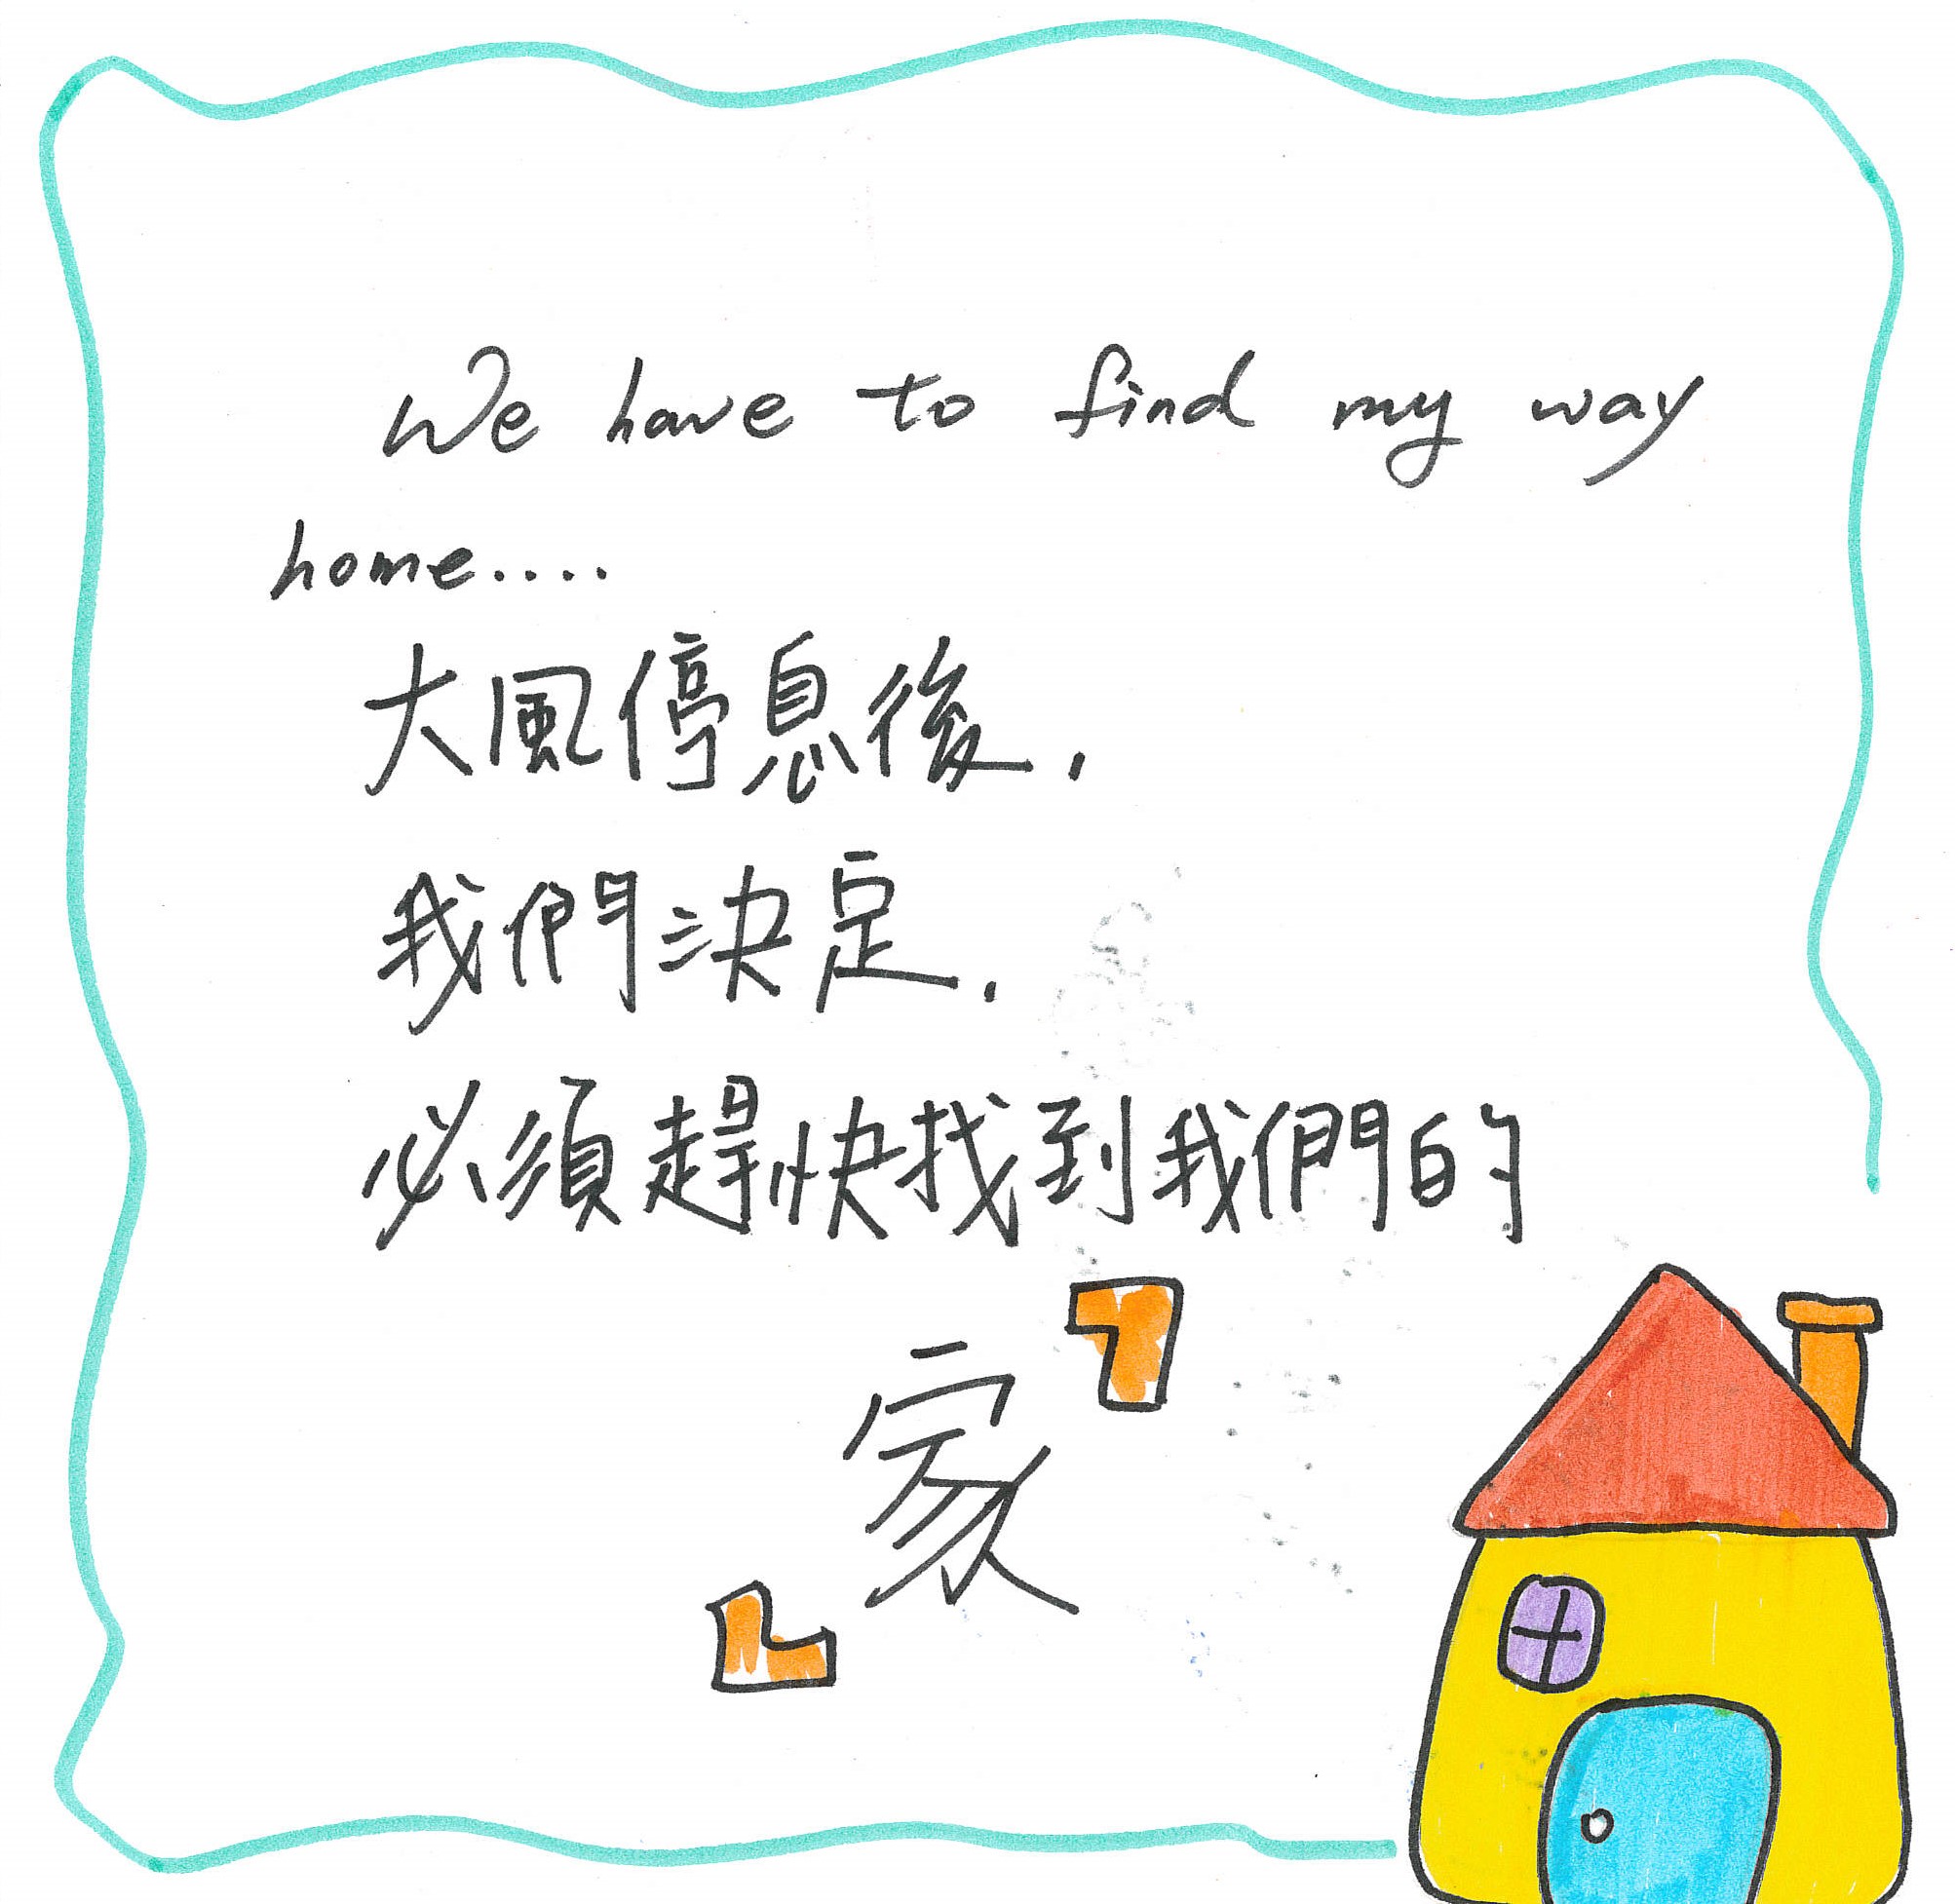 We have to find my way
home....
大風停息後,
我們決定,
必須趕快找到我們的
家